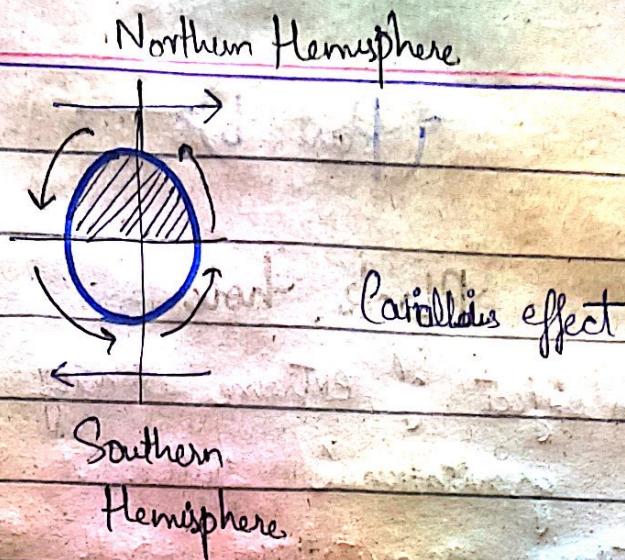 Northern Hemisphere
effect
Southern
Hemisphere